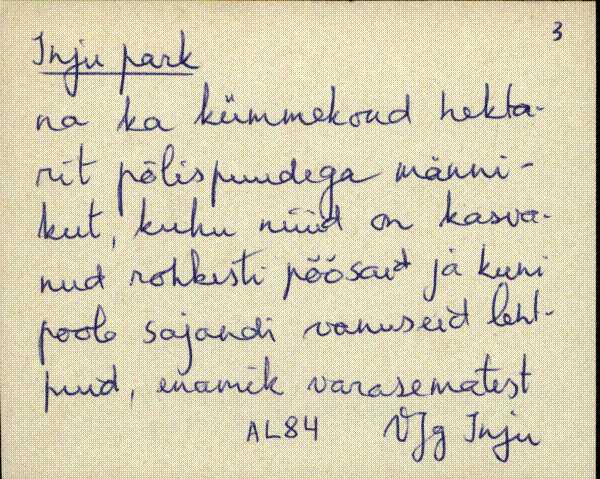 3
Inju park
na ka kümmekond hekta-
rit põlispuudega männi-
kut, kuhu nüüd on kasva-
nud rohkesti põõsaid ja kuni
poole sajandi vanuseid leht-
puid, enamik varasematest
AL84 VJg Inju